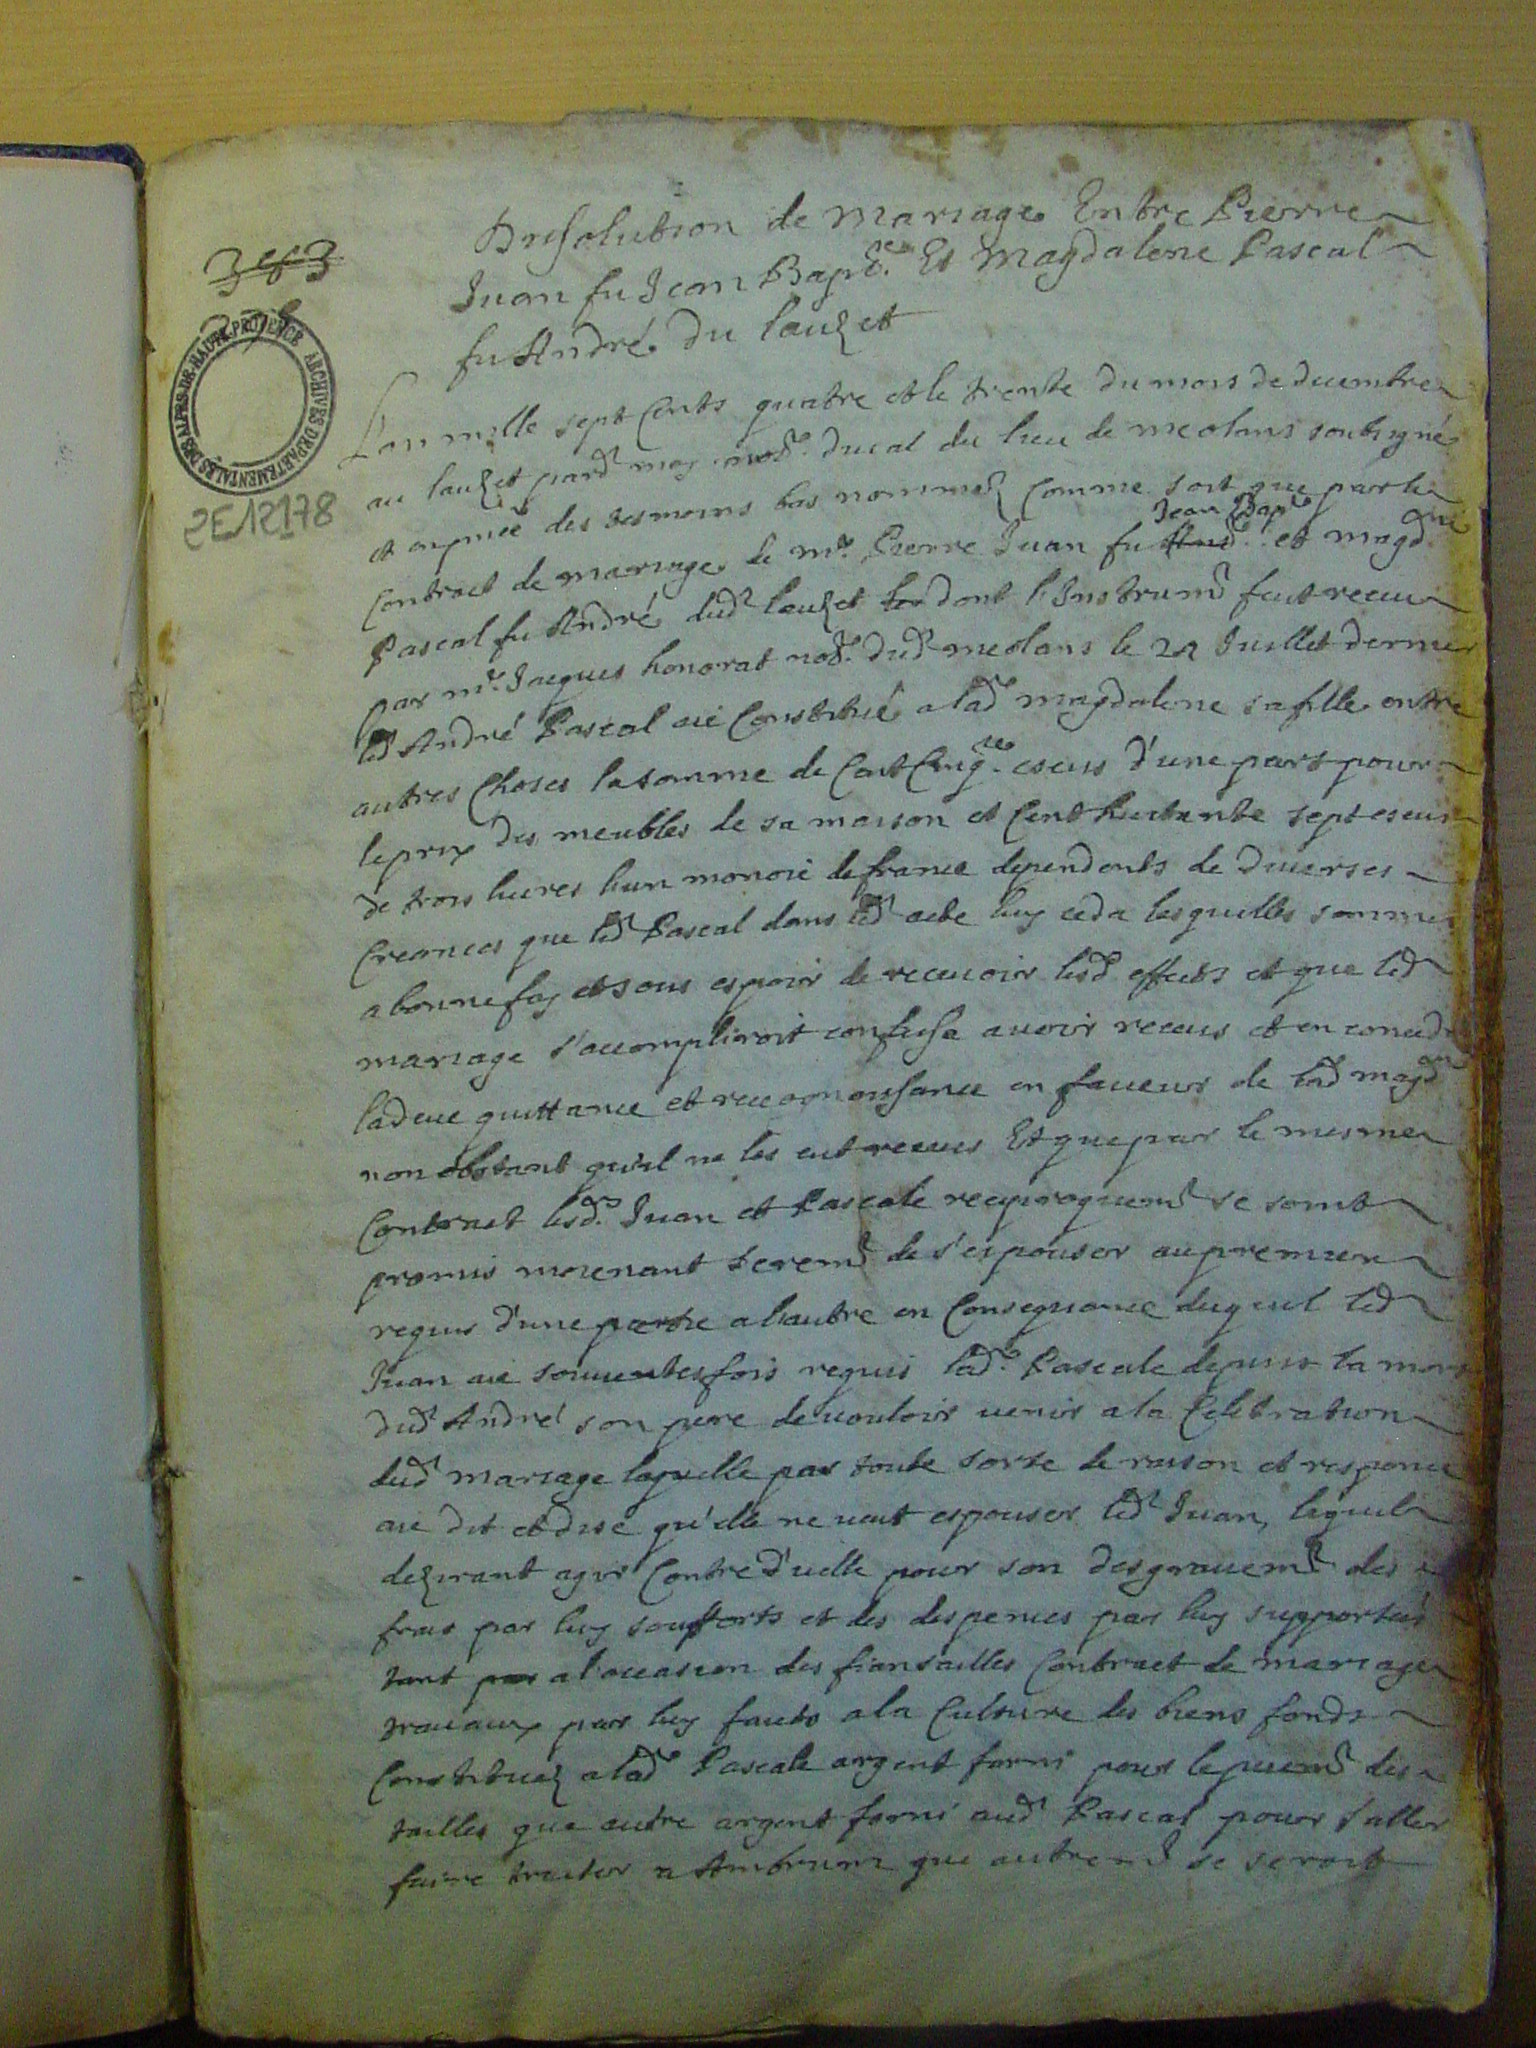 Dissolution de mariage Entre Pierre
Juan fu Jean Bapte. Et Magdalene Pascal
fu André du lauzet
3ef3
ARCHIVES DEPARTEMENTALES DES ALPES-DE-HAUTE-PROVENCE
2E12178
L'an mille sept Cents quatre et le trente du mois de decembre
au lauzet pard.t moy not.e ducal du lieu de meolans soubsigné
et en pnce des tesmoins bas nommez Comme soit que par le
Jean Bapte
Contract de mariage de me. Pierre Juan fu And.e et magd.ne
Pascal fu André dud.t lauzet dont l'Instrum.t fut receu
par me. Jaques honorat not.e dud.t meolans le 21 Juillet dernier
led.t André Pascal aie Constitué a lad.e magdalene sa fille entre
autres Choses la somme de Cent Cinq.te escus d'une part pour
le prix des meubles de sa maison et Cent huitante sept escus
de trois liures l'un monoie de france dependents de diuerses
Creances que led.t Pascal dans led.t acte luy ceda lesquelles sommes
a bonne foy et sous espoir de receuoir lesd.s effects et que led.t
mariage s'accompliroit confessa auoir receus et en conceda
ladeue quittance et recognoissance en faueur de lad.e magd.ne
non obstant qu'il ne les eut receues Et que par le mesme
Contract lesd.s Juan et Pascale reciproquem.t se sont
promis moienant serem.t de s'espouser au premier
requis d'une partie a l'autre en Consequance duquel led.t
Juan aie souuentesfois requis lad.e Pascale depuis la mort
dud.t André son pere de vouloir venir a la Celebration
dud.t mariage laquelle par toute sorte de raison et responce
aie dit et dise qu'elle ne veut espouser led.t Juan, lequel
dezirant agir Contre d'icelle pour son desgrauem.t des
frais par luy soufferts et des despences par luy supportées
tant par a l'occasion des fiansailles Contract de mariage
trauaux par luy faicts a la Culture des biens fonds
Constituez a lad.e Pascale argent forni pour le paiem.t des
tailles que autre argent forni aud.t Pascal pour s'aller
faire traiter a Ambrum que autrem.t se seroit